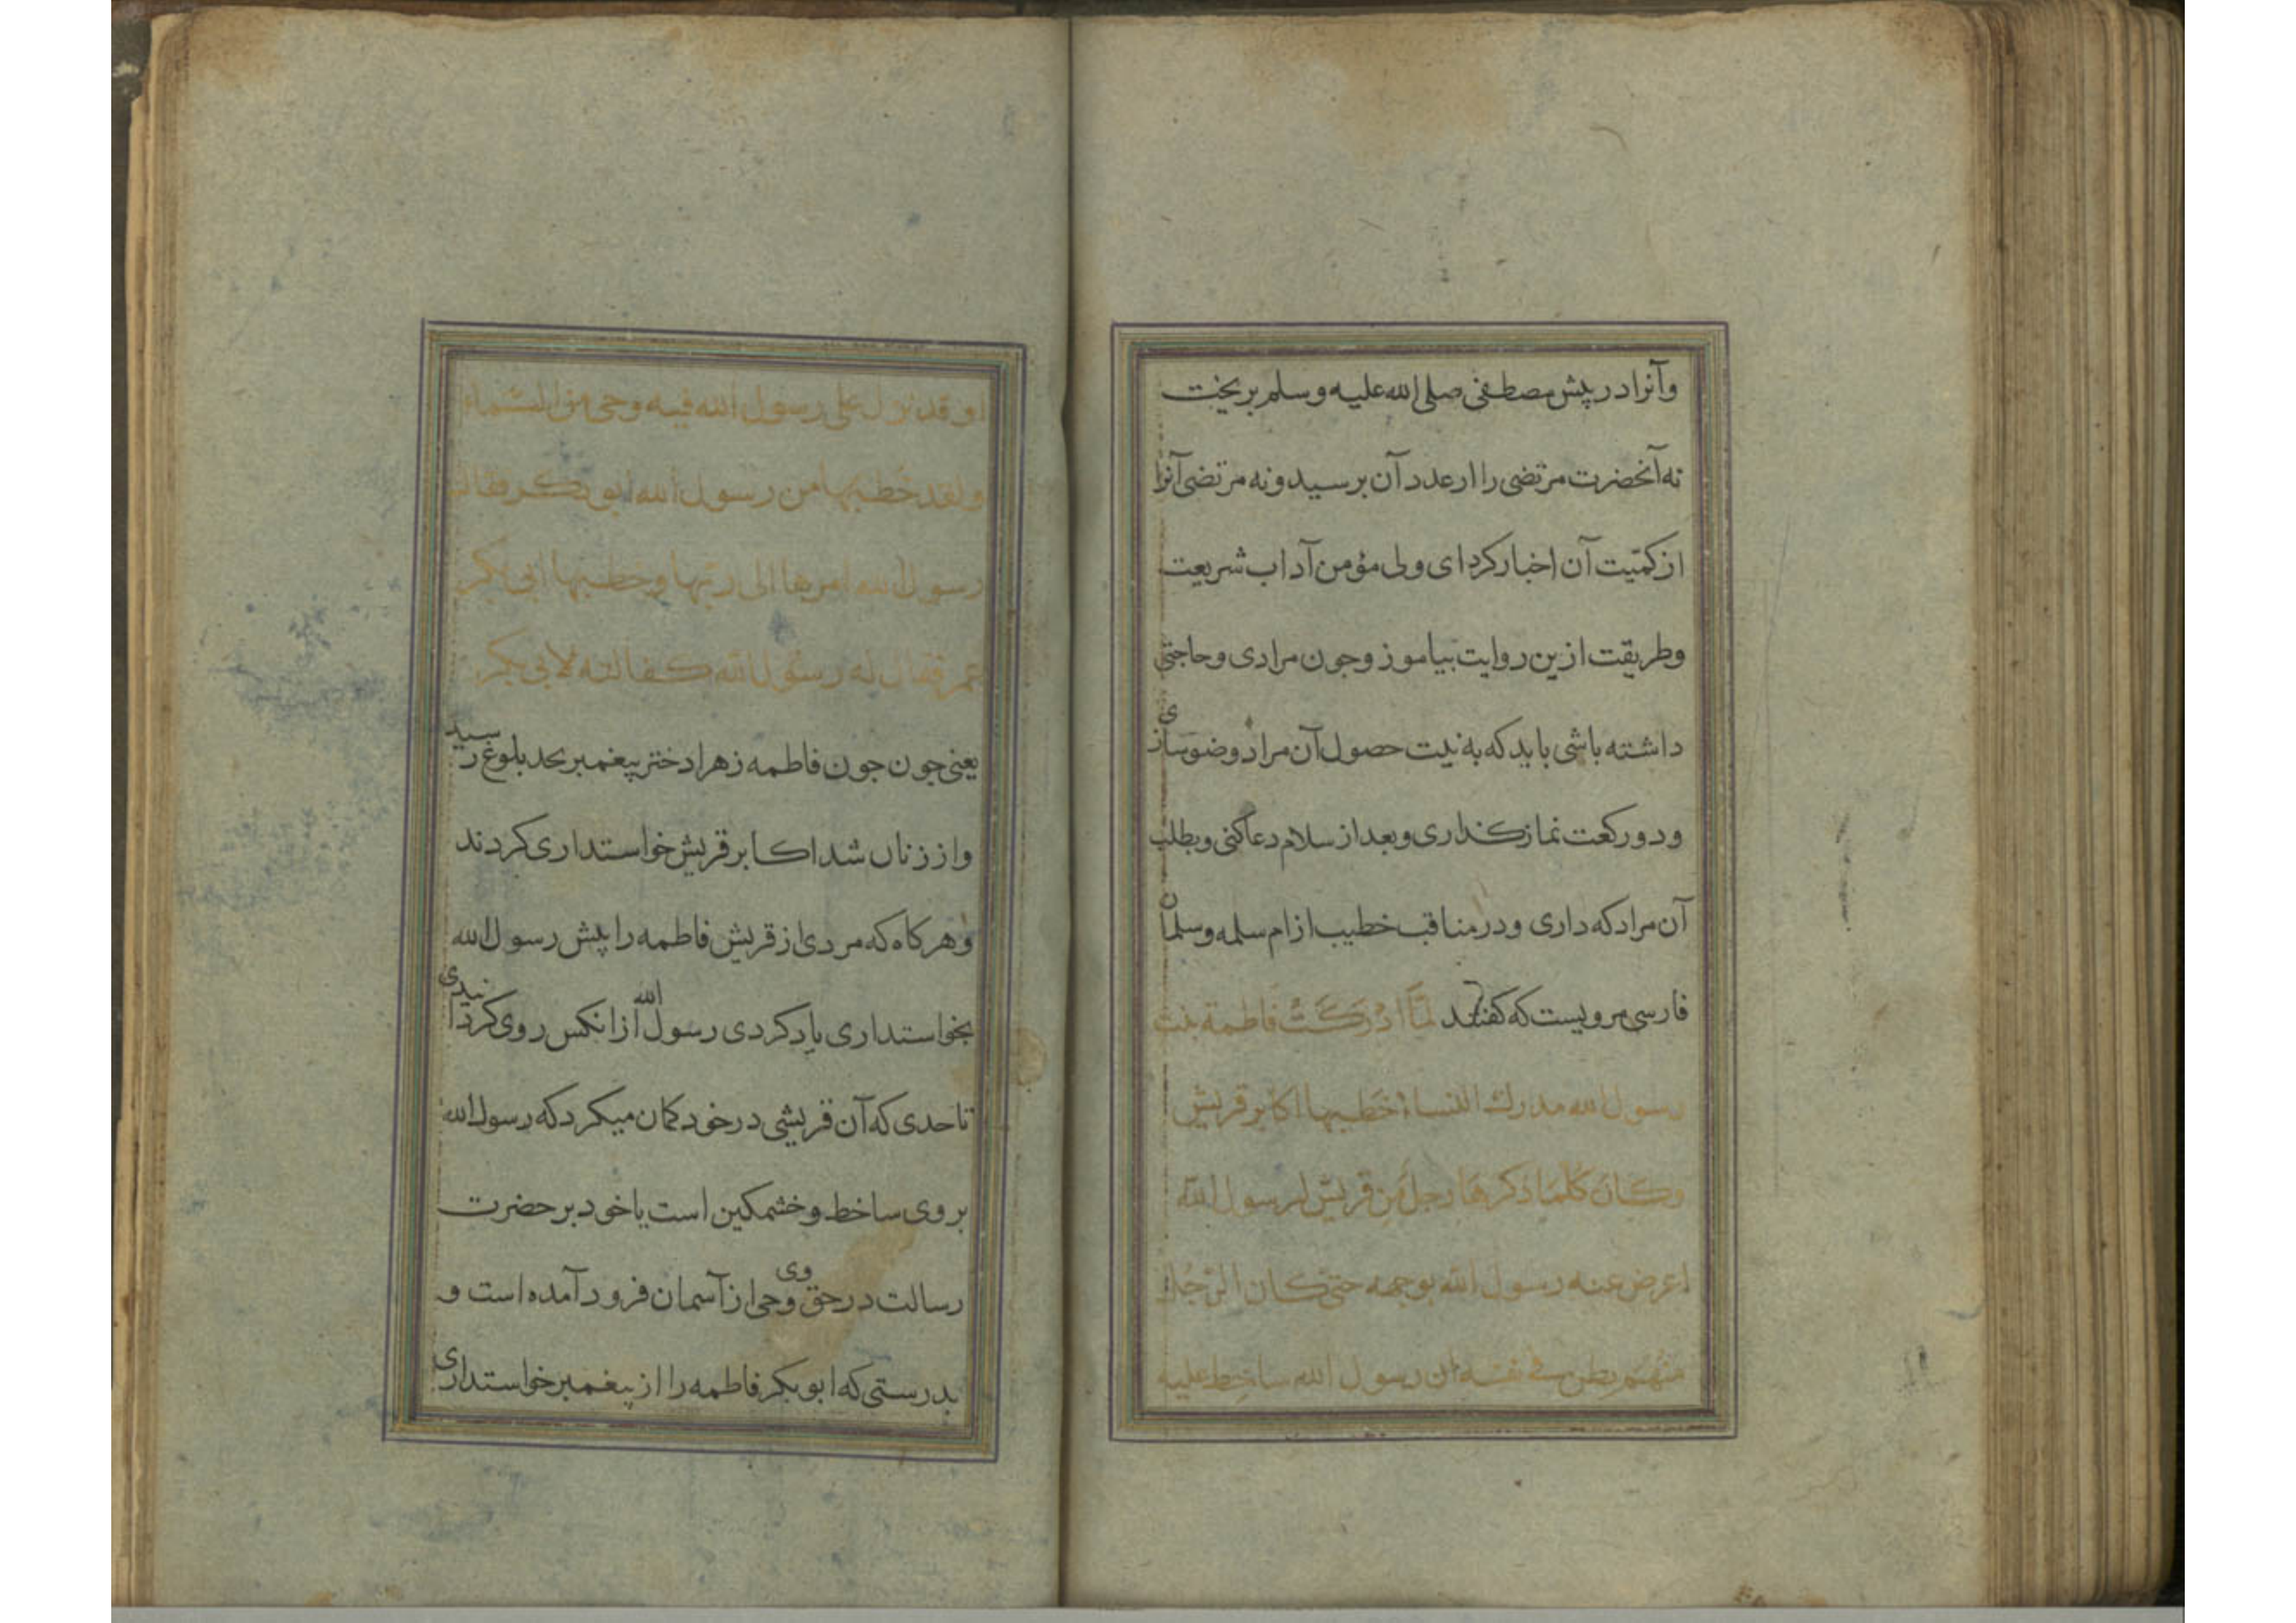 وآنرا در پیش مصطفی صلی الله علیه وسلم بریخت
نه آنحضرت مرتضی را ار عدد آن برسید و نه مرتضی آنرا
از کمّیت آن اخبار کرد ای ولی مؤمن آداب شریعت
وطریقت ازین روایت بیاموز وجون مرادی وحاجتی
داشته باشی باید که به نیت حصول آن مراد وضو سازی
ودو رکعت نماز کذاری وبعد از سلام دعا کنی وبطلب
آن مراد که داری ودر مناقب خطیب از ام سلمه وسلمان
فارسی مرویست که کفتند لَمَّا ادْرَكَتْ فَاطمة بنت
رسول الله مدرك النساء خَطبها اكابر قریش
وكَانَ كلّمَا ذكرهَا رجلٌ مِن قریش لرسول الله
اعرض عنه رسول الله بوجهه حتی كان الرّجُل
منهُم یظن فی نفسه ان رسول الله ساخط علیه
او قد نزل علی رسول الله فیه وحی من السّماء
ولقد خطبها من رسول الله ابو بكر فقال
رسول الله امرها الی ربّها وخطبها ابی بكر
عمر فقال له رسول الله كمقالته لابی بكر
یعنی جون جون فاطمه زهرا دختر پیغمبر بحد بلوغ رسید
واز زنان شد اکابر قریش خواستداری کردند
وهرکاه که مردی از قریش فاطمه را پیش رسول الله
بخواستداری یاد کردی رسول الله ازانکس روی کردانیدی
تا حدی که آن قریشی در خود کمان میکرد که رسول الله
بروی ساخط وخشمکین است یا خود بر حضرت
رسالت در حق وی وحی از آسمان فرود آمده است و
بدرستی که ابو بکر فاطمه را از پیغمبر خواستداری